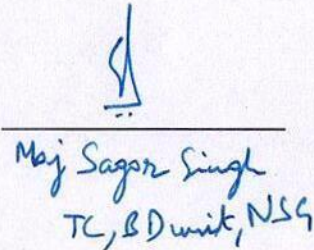 Maj Sagar Singh
TC, BD unit, NSG